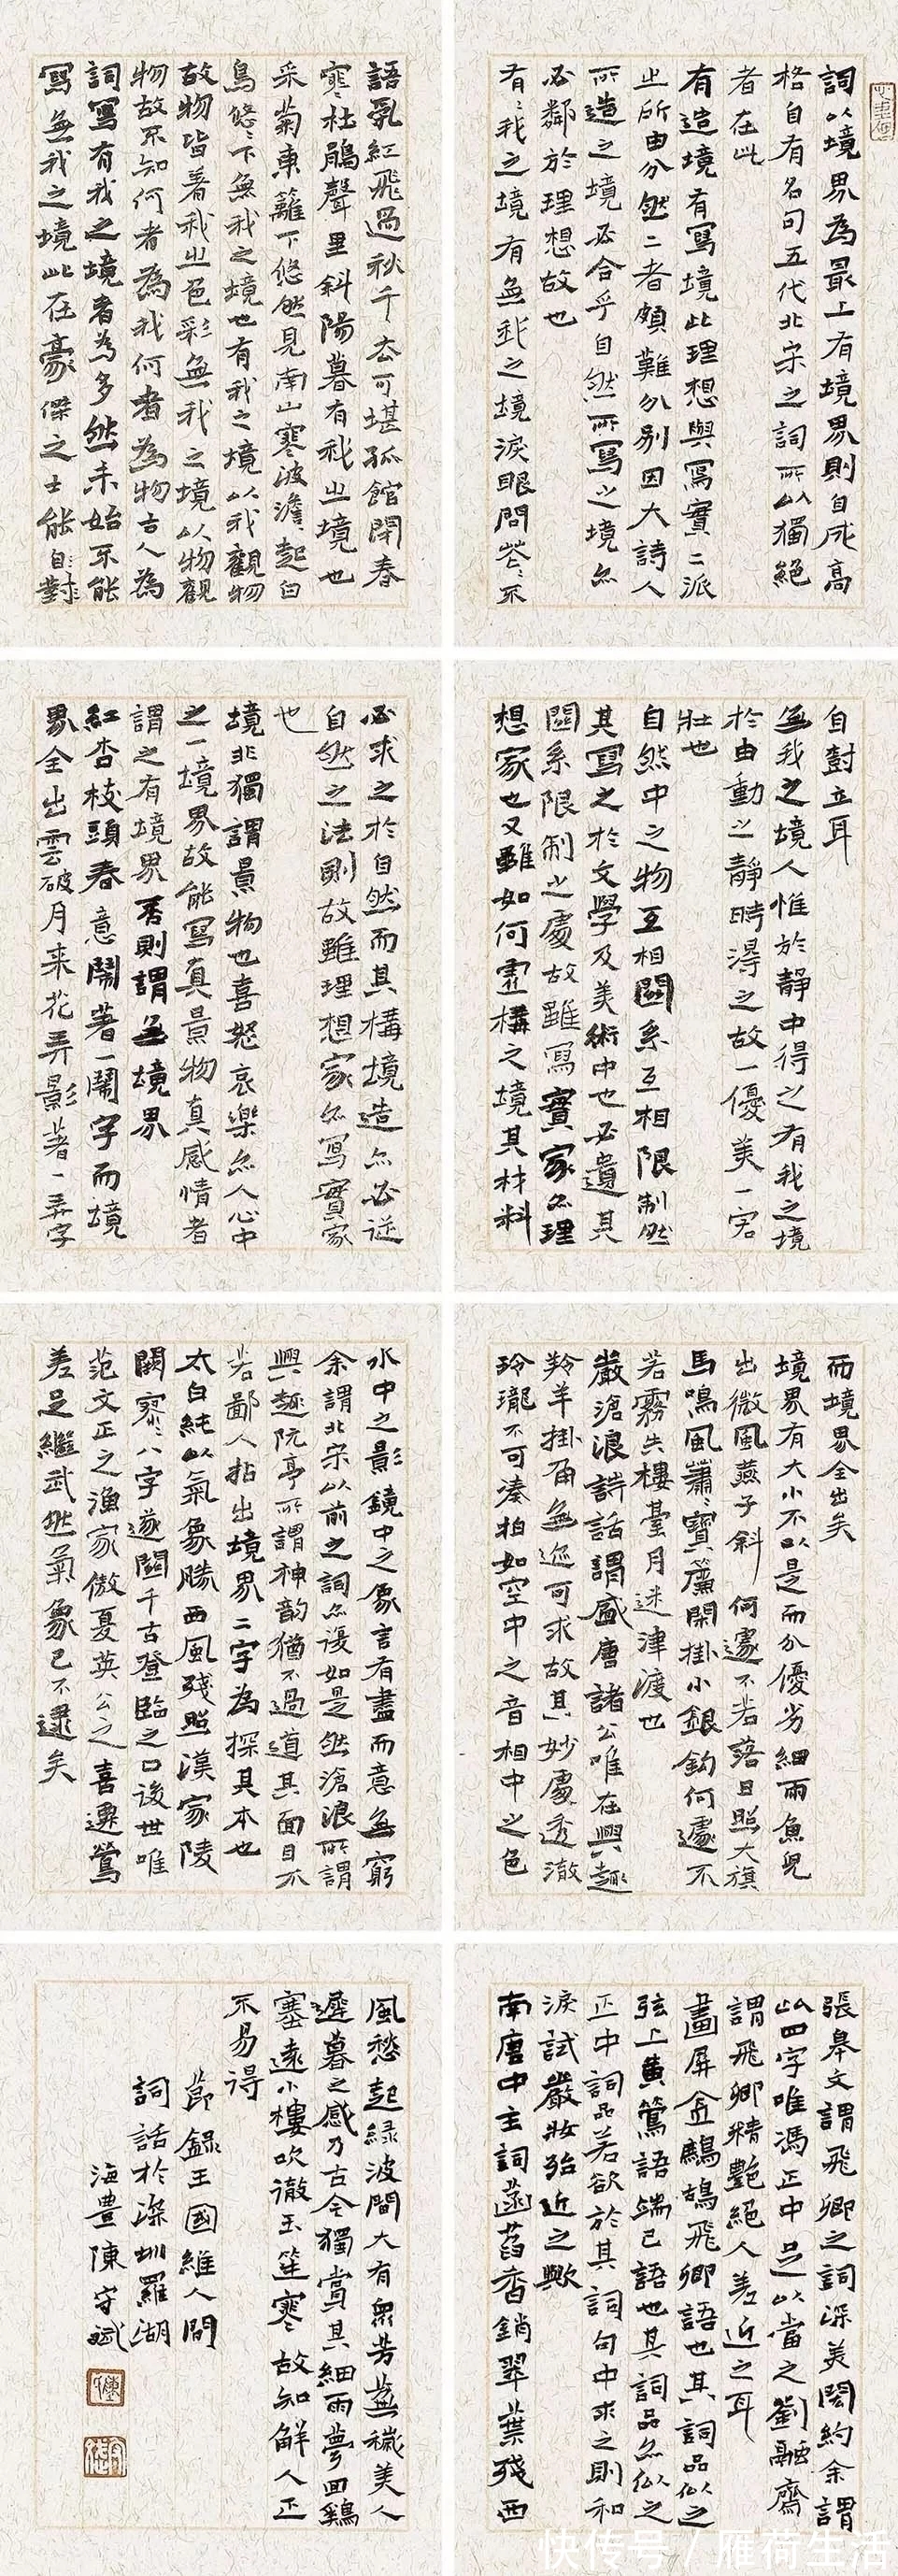 詞以境界為最上有境界則自成高
格自有名句五代北宋之詞所以獨絕
者在此
有造境有寫境此理想與寫實二派
之所由分然二者頗難分別因大詩人
所造之境必合乎自然所寫之境亦
必鄰於理想故也
有〻我之境有無我之境淚眼問花〻不
語亂紅飛過秋千去可堪孤館閉春
寒杜鵑聲里斜陽暮有我之境也
采菊東籬下悠然見南山寒波澹〻起白
鳥悠〻下無我之境也有我之境以我觀物
故物皆著我之色彩無我之境以物觀
物故不知何者為我何者為物古人為
詞寫有我之境者為多然未始不能
寫無我之境此在豪傑之士能自尌
自尌立耳
無我之境人惟於靜中得之有我之境
於由動之靜時得之故一優美一宏
壯也
自然中之物互相關系互相限制然
其寫之於文學及美術中也必遺其
關系限制之處故雖寫實家亦理
想家也又雖如何虛構之境其材料
必求之於自然而其構境造亦必從
自然之法則故雖理想家亦寫實家
也
境非獨謂景物也喜怒哀樂亦人心中
之一境界故能寫真景物真感情者
謂之有境界否則謂無境界
紅杏枝頭春意鬧著一鬧字而境
界全出雲破月來花弄影著一弄字
而境界全出矣
境界有大小不以是而分優劣細雨魚兒
出微風燕子斜何遽不若落日照大旗
馬鳴風蕭〻寶簾閑掛小銀鈎何遽不
若霧失樓臺月迷津渡也
嚴滄浪詩話謂盛唐諸公唯在興趣
羚羊掛角無跡可求故其妙處透澈
玲瓏不可湊拍如空中之音相中之色
水中之影鏡中之象言有盡而意無窮
余謂北宋以前之詞亦復如是然滄浪所謂
興趣阮亭所謂神韵猶不過道其面目不
若鄙人拈出境界二字為探其本也
太白純以氣象勝西風殘照漢家陵
闕寥〻八字遂關千古登臨之口後世唯
范文正之漁家傲夏英公之喜遷鶯
差足繼武然氣象已不逮矣
張皋文謂飛卿之詞深美閎約余謂
此四字唯馮正中足以當之劉融齋
謂飛卿精艷絕人差近之耳
畫屏金鷓鴣飛卿語也其詞品似之
弦上黃鶯語端己語也其詞品亦似之
正中詞品若欲於其詞句中求之則和
淚試嚴妝殆近之歟
南唐中主詞菡萏香銷翠葉殘西
風愁起綠波間大有衆芳蕪穢美人
遲暮之感乃古今獨賞其細雨夢回鷄
塞遠小樓吹徹玉笙寒故知解人正
不易得
節錄王國維人間
詞話於深圳羅湖
海豐陳守斌
快传号 / 雁荷生活